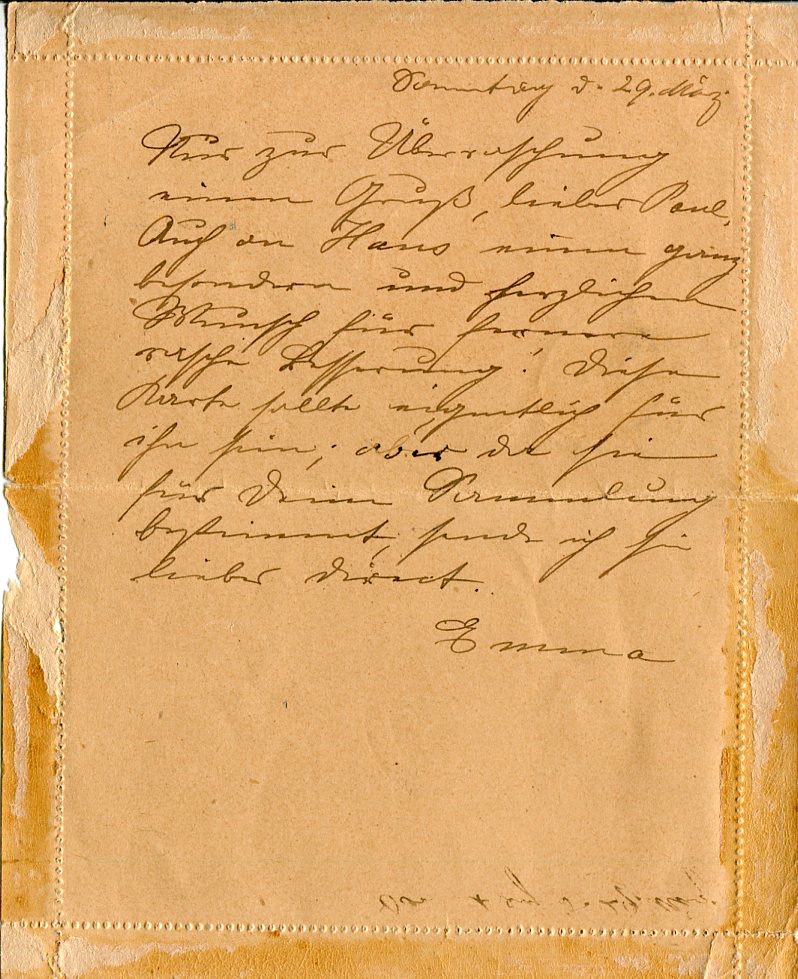 Sonntag d. 29. März
Nur zur Überraschung
einen Gruß, lieber Paul,
Auch an Hans einen ganz
besondern und herzlichen
Wunsch für fernere
rasche Besserung! Diese
Karte sollte eigentlich für
ihn sein; aber da sie
für Deine Sammlung
bestimmt, sende ich sie
lieber direct.
Emma